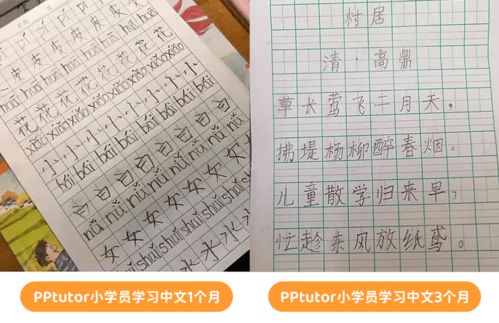 pí pí pí
皮 皮 皮 皮 皮
huā huā huā huā huā huā
花 花 花 花 花 花 花
xiǎo xiǎo xiǎo xiǎo xiǎo xiǎo xiǎo
小 小 小 小 小 小 小
bái bái bái bái bái bái bái
白 白 白 白 白 白
nǚ nǚ nǚ nǚ nǚ nǚ nǚ
女 女 女 女 女 女
shuǐ shuǐ shuǐ shuǐ shuǐ
水 水 水 水
村居
清·高鼎
草长莺飞二月天,
拂堤杨柳醉春烟。
儿童散学归来早,
忙趁东风放纸鸢。
PPtutor小学员学习中文1个月
PPtutor小学员学习中文3个月